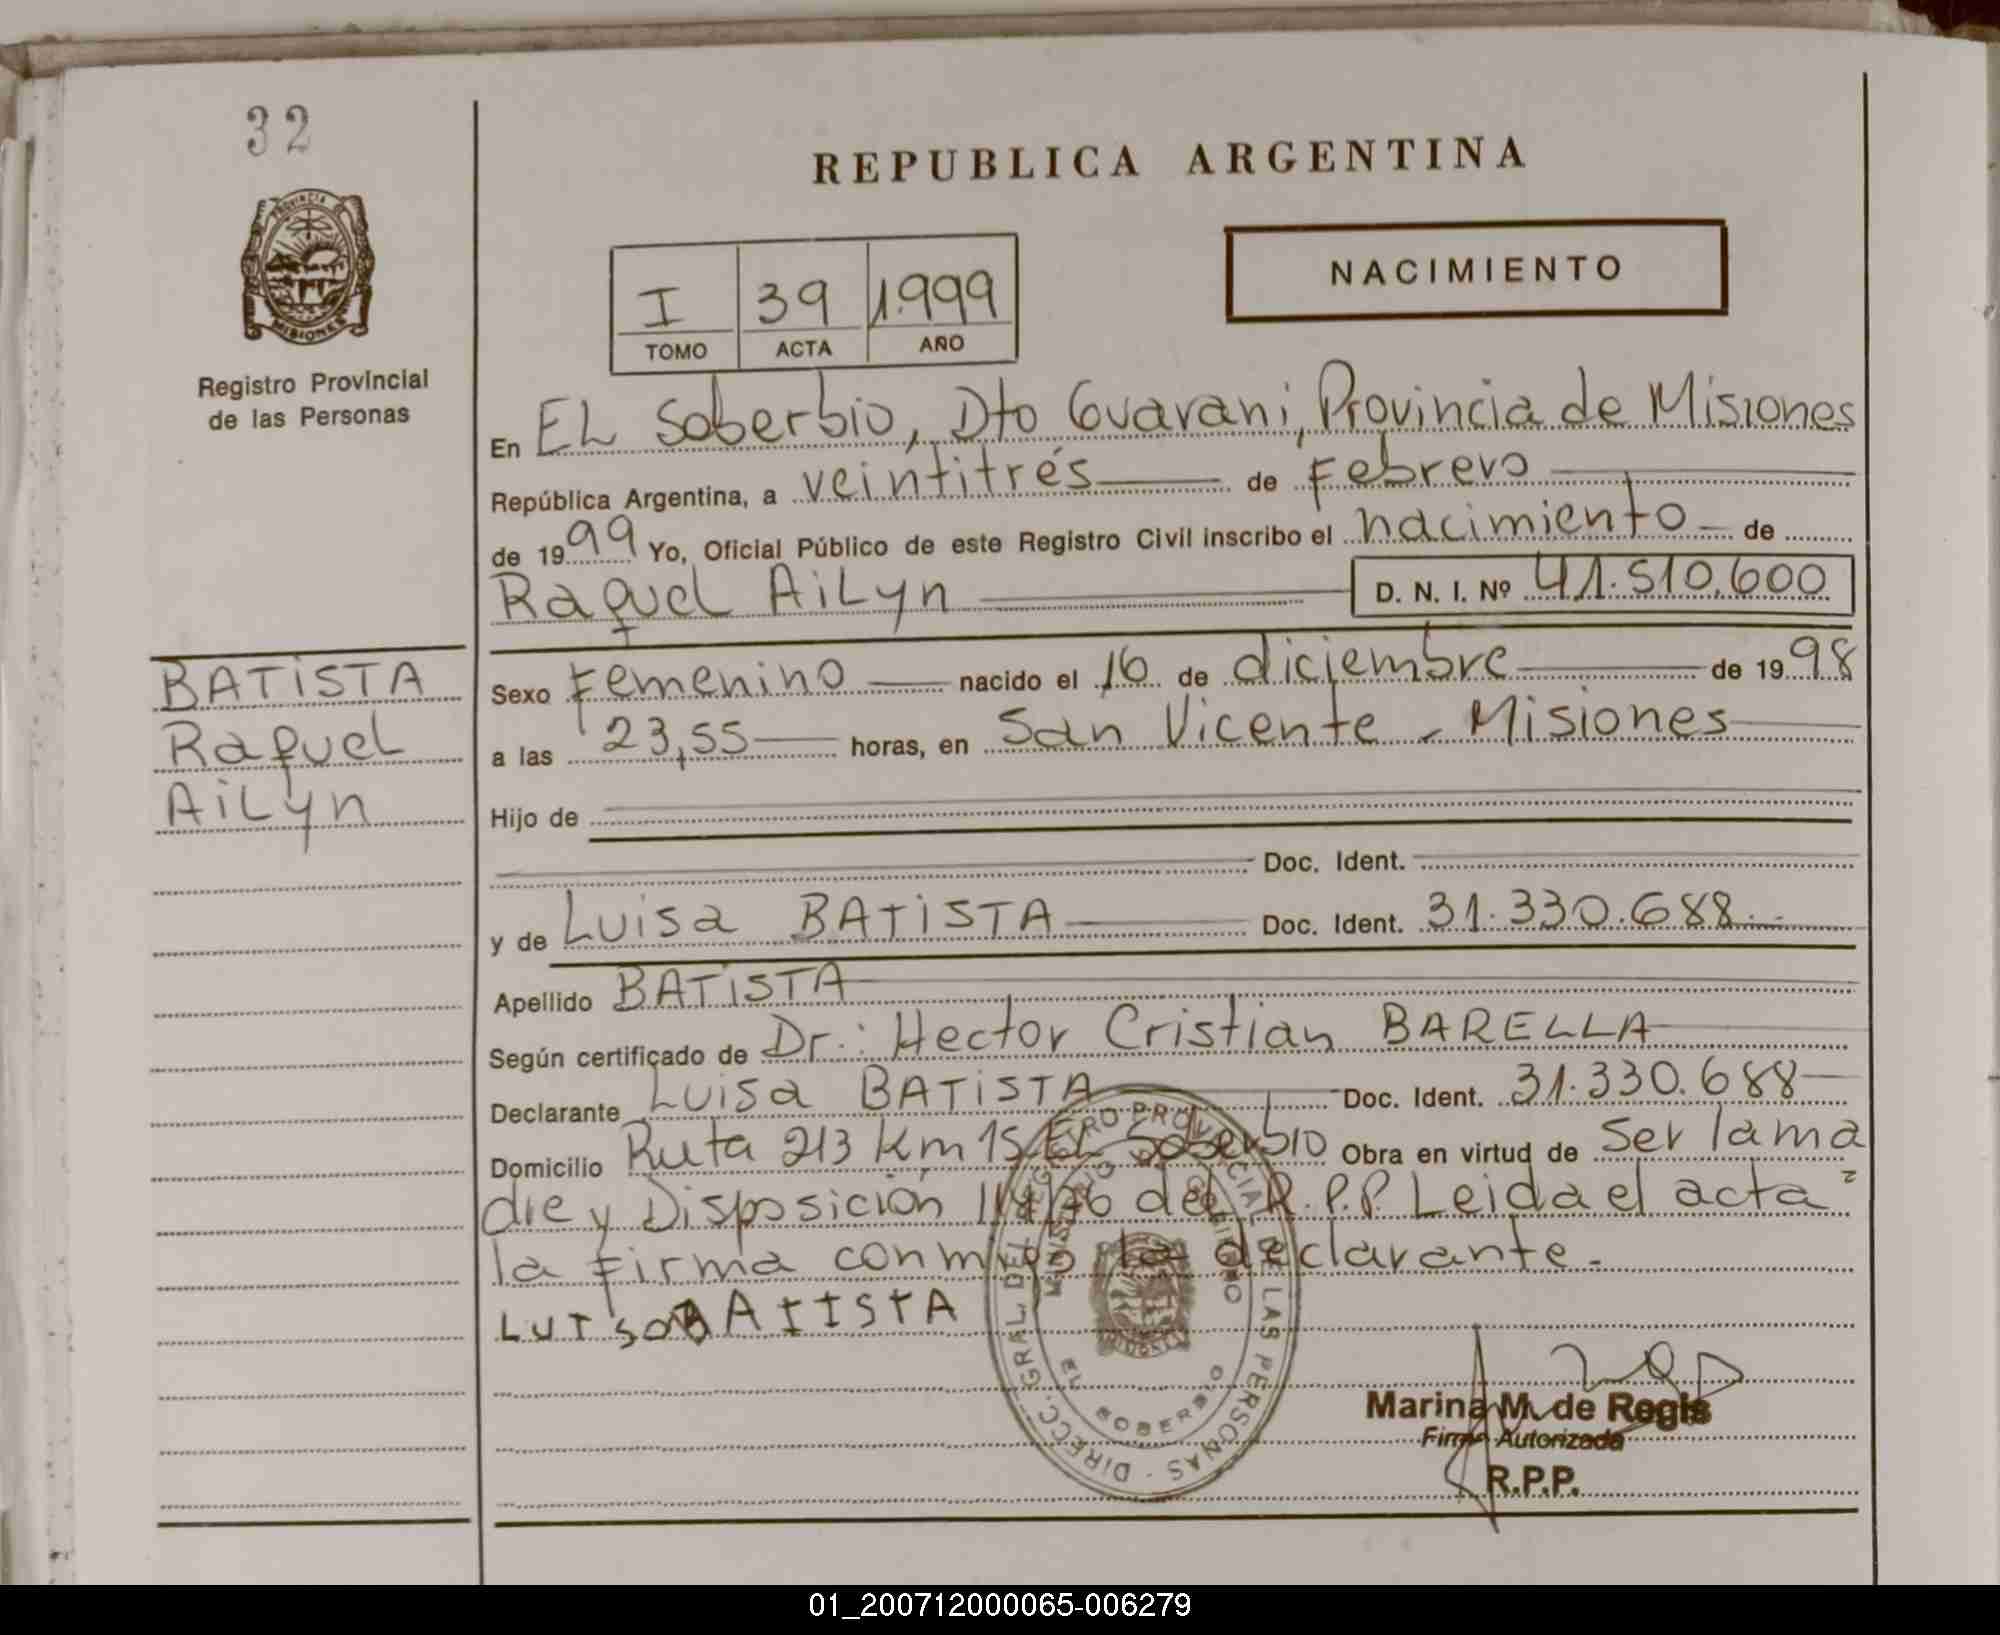 32
REPUBLICA ARGENTINA
PROVINCIA
MISIONES
NACIMIENTO
I 39 1.999
TOMO ACTA AÑO
Registro Provincial
de las Personas
En EL Soberbio, Dto Guarani, Provincia de Misiones
República Argentina, a veintitrés de Febrero
de 1999 Yo, Oficial Público de este Registro Civil inscribo el nacimiento de
Raquel AiLyn D. N. I. Nº 41.510.600
BATISTA
Raquel
AiLyn
Sexo Femenino nacido el 16 de diciembre de 1998
a las 23,55 horas, en San Vicente - Misiones
Hijo de
Doc. Ident.
y de Luisa BATISTA Doc. Ident. 31.330.688.-
Apellido BATISTA
Según certificado de Dr.: Hector Cristian BARELLA
Declarante Luisa BATISTA Doc. Ident. 31.330.688
Domicilio Ruta 213 Km 15 EL Soberbio Obra en virtud de Ser la ma
dre y Disposición del R.P.P. Leida el acta
la firma conmigo la declarante.-
LUISA BATISTA
DIRECC. GRAL DEL REGISTRO PROVINCIAL DE LAS PERSONAS
MINISTERIO DE GOBIERNO
EL SOBERBIO
Marina M. de Regis
Firma Autorizada
R.P.P.
01_200712000065-006279